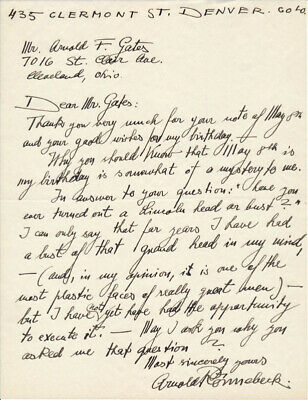 435 CLERMONT ST. DENVER. COLO.
Mr. Arnold F. Gates
7016 St. Clair Ave.
Cleveland, Ohio.
Dear Mr. Gates:
Thank you very much for your note of May 8th
and your good wishes for my birthday. —
Why you should know that May 8th is
my birthday is somewhat of a mystery to me.
In answer to your question: "have you
ever turned out a Lincoln head or bust?"
I can only say that for years I have had
a bust of that grand head in my mind,
— (and, in my opinion, it is one of the
most plastic faces of really great men) —
but I have not yet hope had the opportunity
to execute it. — May I ask you why you
asked me that question
Most sincerely yours
Arnold Rönnebeck.